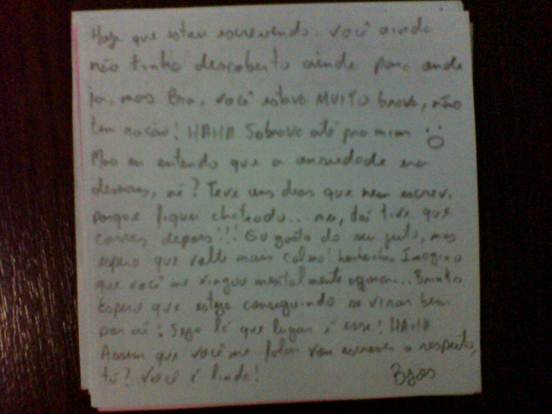 Hoje que estou escrevendo, você ainda
não tinha descoberto ainda para onde
ia, mas Bra, você estava MUITO brava, não
tem noção! HAHA Sobrava até pra mim
Mas eu entendo que a ansiedade era
demais, né? Teve uns dias que nem escrevi,
porque fiquei chateado... daí tive que
correr depois!!! Eu gosto do seu jeito, mas
espero que volte mais calma! Imagino
que você me xingou mentalmente agora...
Espero que esteja conseguindo se virar bem
por aí! Seja lá que lugar é esse! HAHA
Assim que você me vou escrever a respeito,
tá? Você é linda! Bjos